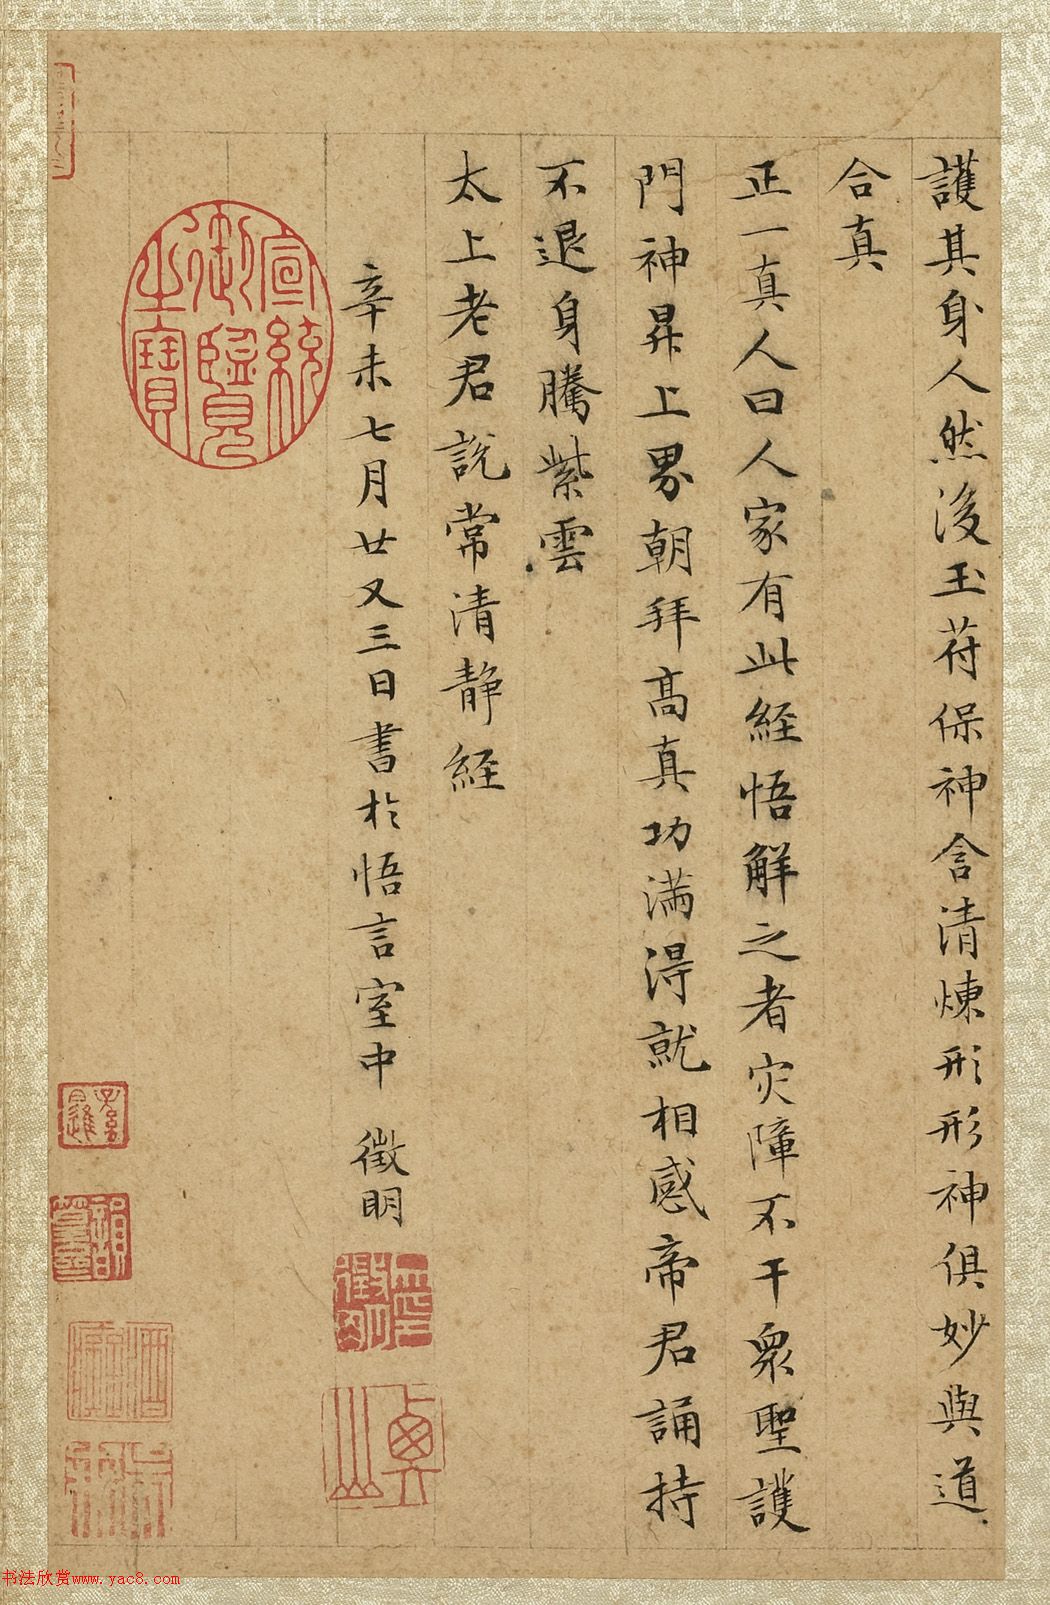 護其身人然後玉苻保神含清煉形形神俱妙與道
合真
正一真人曰人家有此経悟解之者灾障不干衆聖護
門神昇上界朝拜高真功滿得就相感帝君誦持
不退身騰紫雲
太上老君說常清静経
辛未七月廿又三日書於悟言室中 徵明
宣統御覽之寶
书法欣赏www.yac8.com